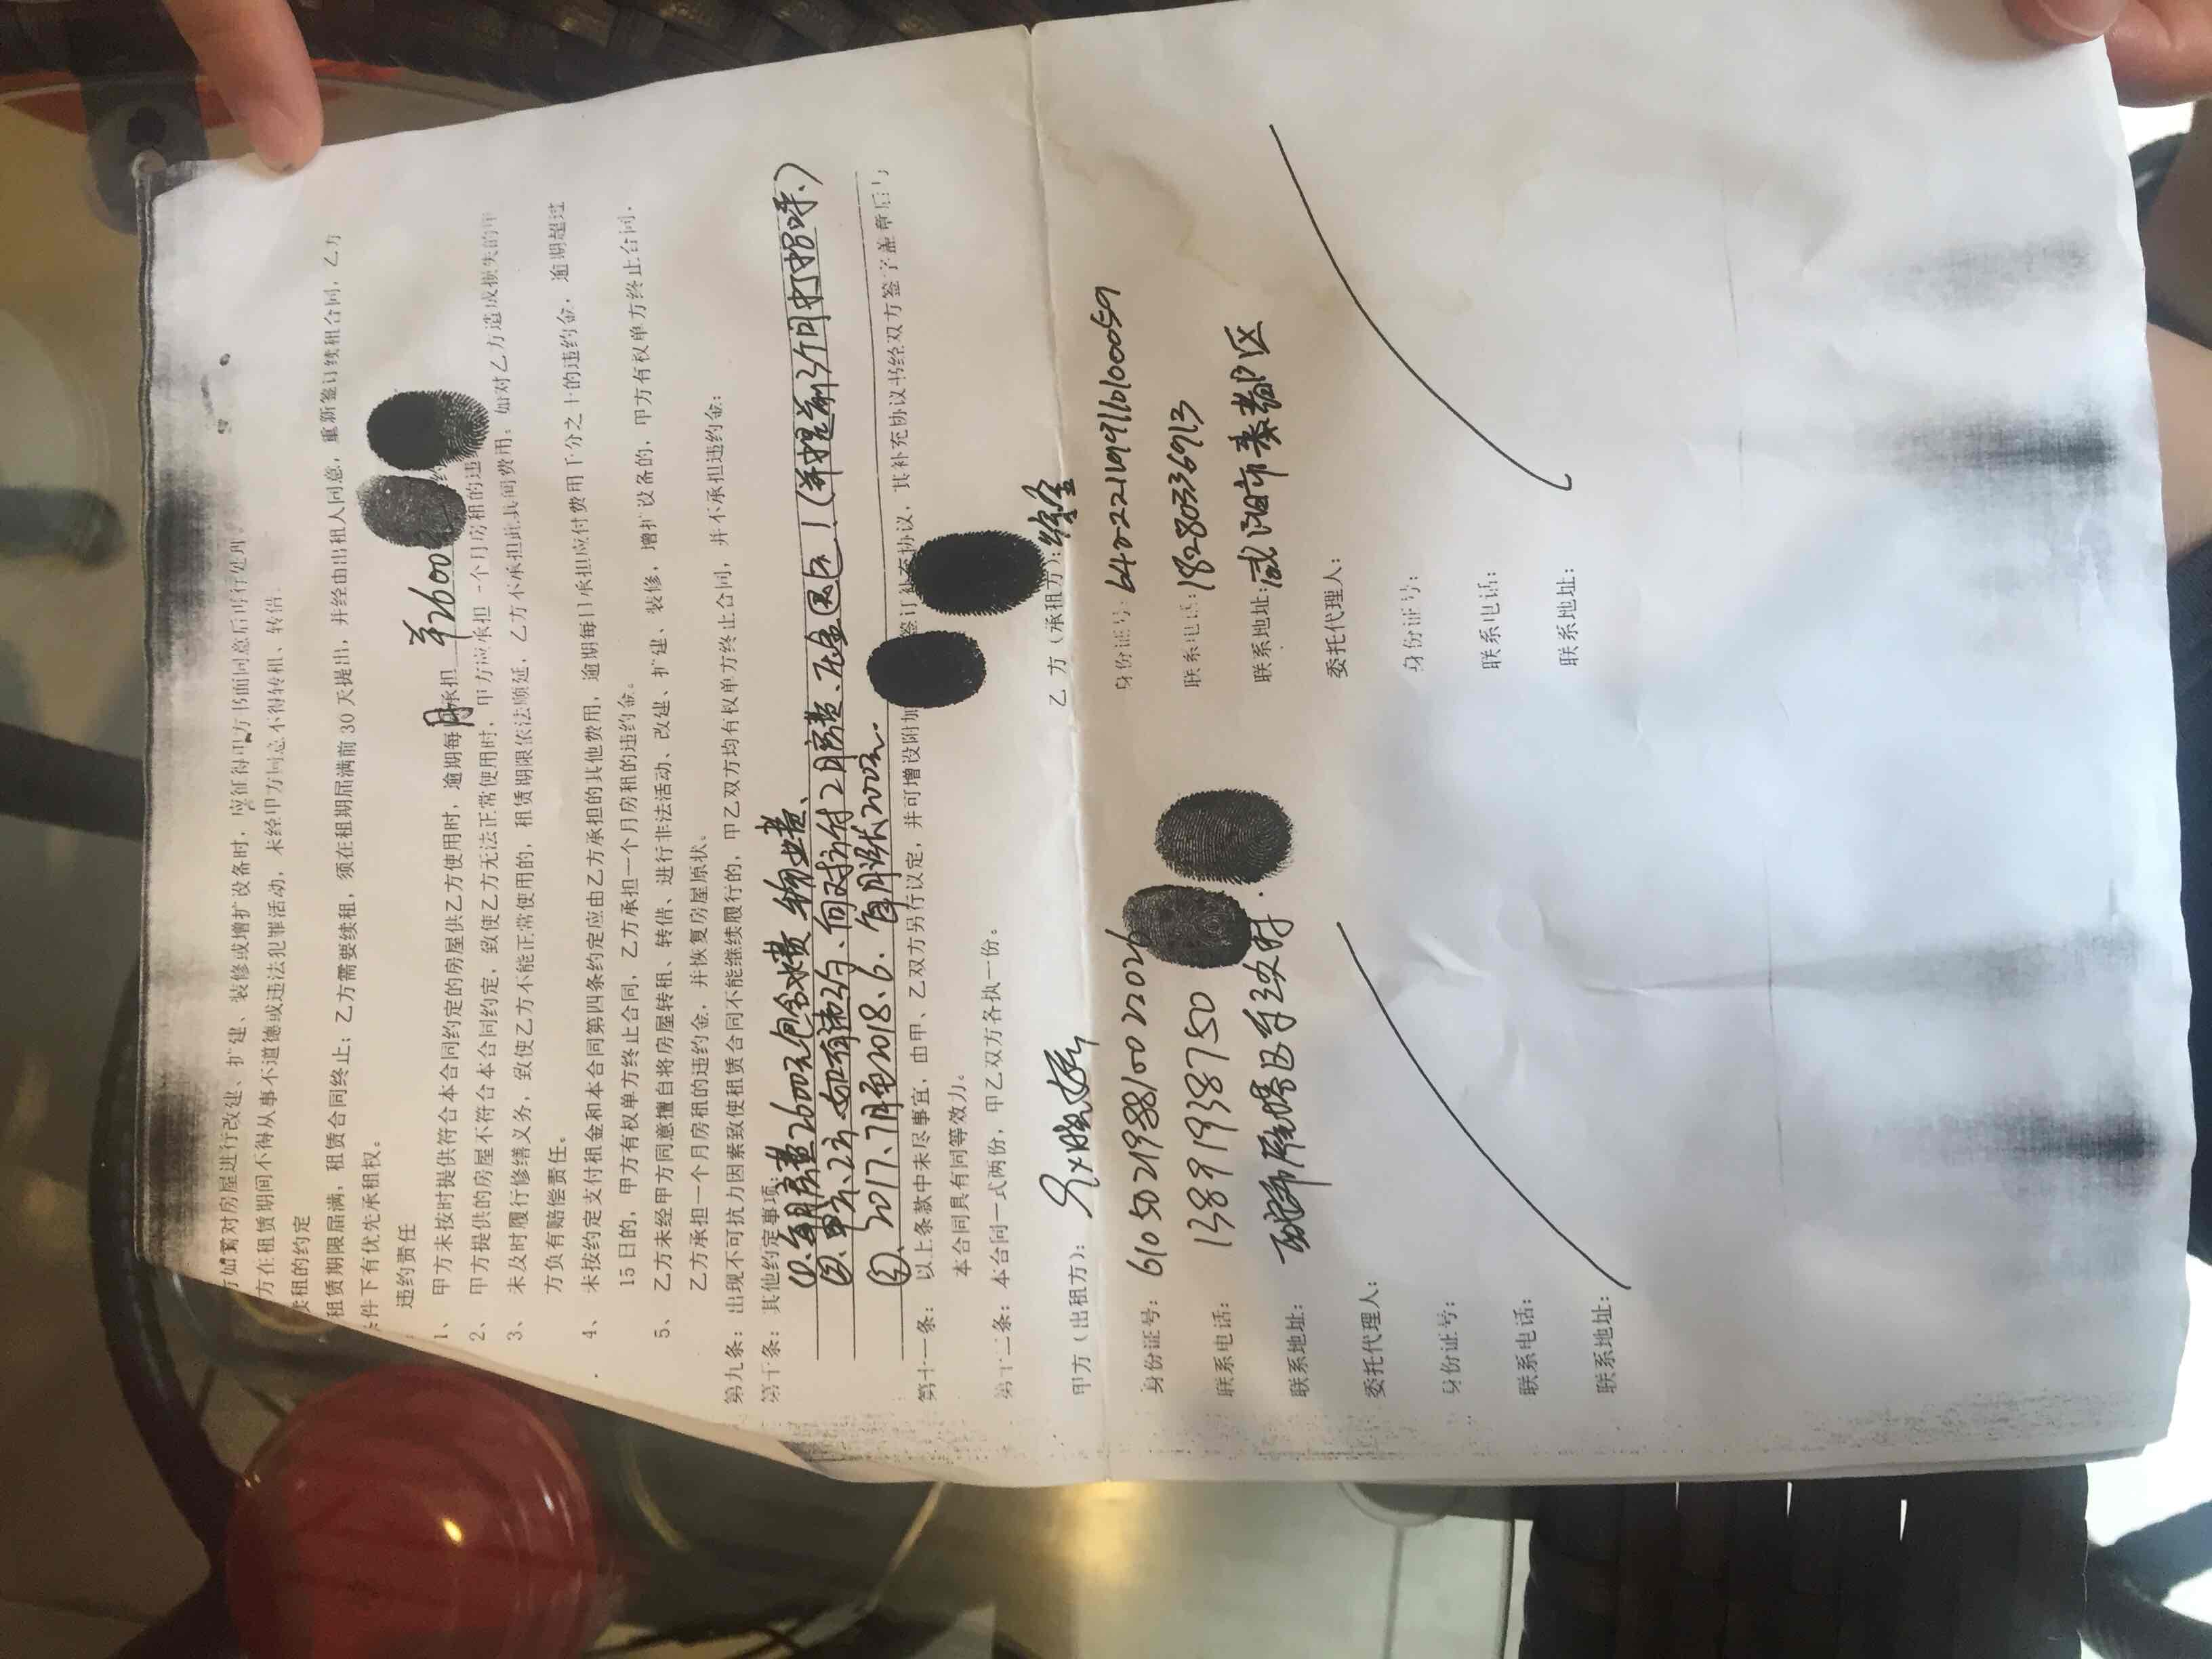 方如需对房屋进行改建、扩建、装修或增扩设备时，应征得甲方书面同意后再行处理
方在租赁期间不得从事不道德或违法犯罪活动，未经甲方同意不得转租、转借
续租的约定
租赁期限届满，租赁合同终止；乙方需要续租，须在租期届满前30天提出，并经由出租人同意，重新签订续租合同，乙方
条件下有优先承租权。
违约责任
1、 甲方未按时提供符合本合同约定的房屋供乙方使用时，逾期每月承担 ￥2600元 约
2、 甲方提供的房屋不符合本合同约定，致使乙方无法正常使用时，甲方应承担一个月房租的违
3、 未及时履行修缮义务，致使乙方不能正常使用的，租赁期限依法顺延，乙方不承担此其间费用；如对乙方造成损失的甲
方负有赔偿责任。
4、 未按约定支付租金和本合同第四条约定应由乙方承担的其他费用，逾期每日承担应付费用千分之十的违约金，逾期超过
15日的，甲方有权单方终止合同，乙方承担一个月房租的违约金。
5、 乙方未经甲方同意擅自将房屋转租、转借、进行非法活动、改建、扩建、装修，增扩设备的，甲方有权单方终止合同，
乙方承担一个月房租的违约金，并恢复房屋原状。
第九条：出现不可抗力因素致使租赁合同不能继续履行的，甲乙双方均有权单方终止合同，并不承担违约金；
第十条：其他约定事项：
①、每月房费2600元包含水费 物业费、
②、甲方、乙方、如有违约、向对方付2月房费、压金退还！（并提前3个月打招呼、）
③、2017、7月至2018、6、每月涨200元.
第十一条： 以上条款中未尽事宜，由甲、乙双方另行议定，并可增设附加 签订补充协议，其补充协议书经双方签字盖章后与
本合同具有同等效力。
第十二条：本合同一式两份，甲乙双方各执一份。
甲方（出租方）：
乙 方（承租方）：徐金
身份证号：610502198810022026
身份证号：
联系电话：13891938750
联系电话：18280336913
联系地址：西安市雁塔区
联系地址：咸阳市秦都区
委托代理人：
委托代理人：
身份证号：
身份证号：
联系电话：
联系电话：
联系地址：
联系地址：